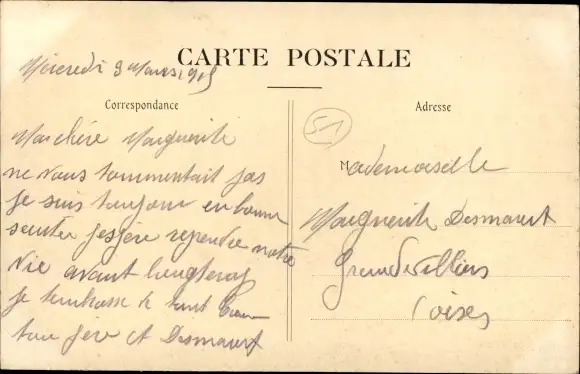 CARTE POSTALE
Mercredi 3 Mars 1915
Correspondance
Adresse
51
Ma chère Marguerite
ne vous tourmentait pas
je suis toujour en bonne
santer jespere reprendre notre
vie avant longtemps
je tembrasse de tout Cœur
ton père A Desmaret
Mademoiselle
Marguerite Desmaret
Grandvilliers
(oise)